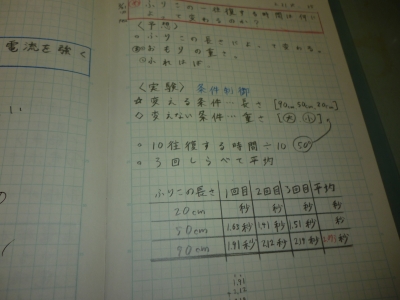 電流を強く
い
ふりこの一往復する時間は何に
よって変わるのか?
<予想>
ふりこの長さによって変わる。
おもりの重さ。
ふれはば
<実験> 条件制御
☆変える条件…長さ
◇変えない条件…重さ [大 小]
10往復する時間÷10 50
3回しらべて平均
ふりこの長さ 1回目 2回目 3回目 平均
20cm 秒 秒 秒 秒
50cm 1.41秒 1.51秒 秒
90cm 1.91秒 2.12秒 2.14秒 秒
1.91